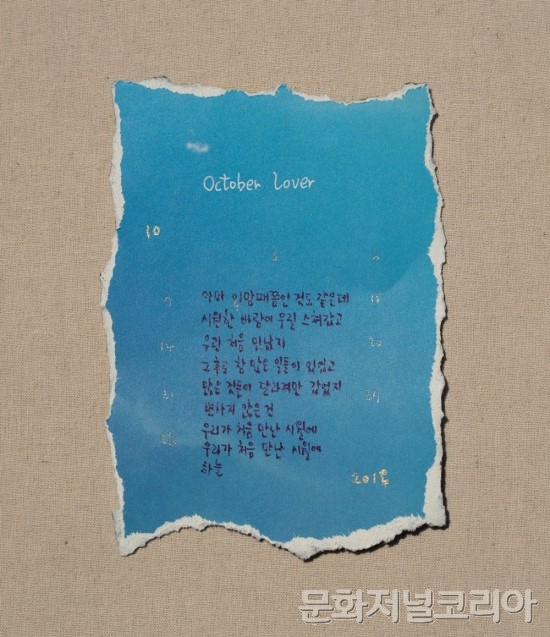 October Lover
10
아마 이맘때쯤인 것도 같은데
시원한 바람이 우릴 스쳐갔고
우린 처음 만났지
그 후로 참 많은 일들이 있었고
많은 것들이 달라져만 갔었지
변하지 않은 건
우리가 처음 만난 시월에
우리가 처음 만난 시월에
하늘
문화저널코리아